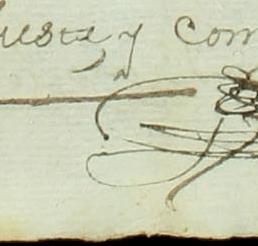 uesta, y com